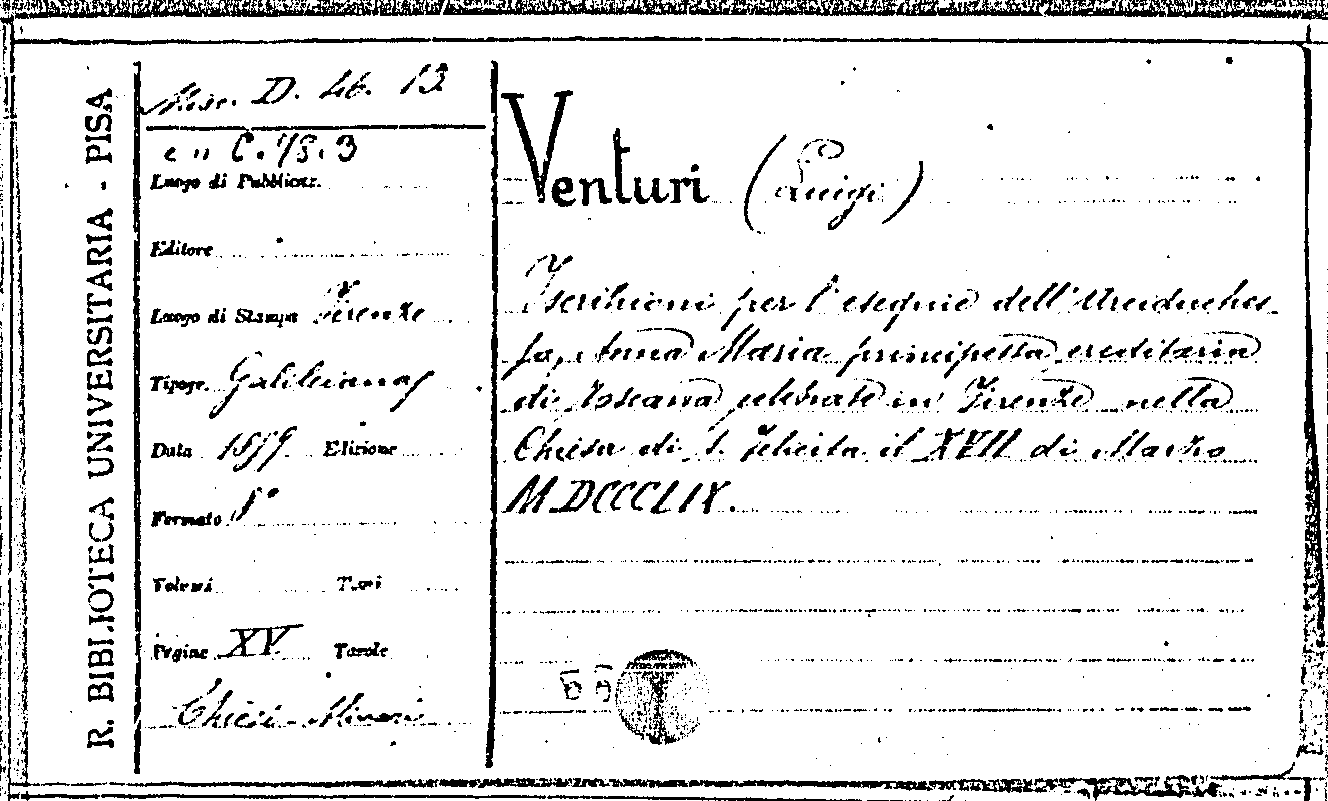 R. BIBLIOTECA UNIVERSITARIA - PISA
Misc. D. 46. 13
e n C. 78. 3
Luogo di Pubblicaz.
Editore
Luogo di Stampa Firenze
Tipogr. Galileiana
Data 1859 Edizione
Formato 8°
Volumi Tomi
Pagine XV Tavole
Venturi (Luigi)
Iscrizioni per l'esequie dell'Arciduches-
sa, Anna Maria principessa ereditaria
di Toscana celebrate in Firenze nella
Chiesa di S. Felicita il XVII di Marzo
MDCCCLIX.